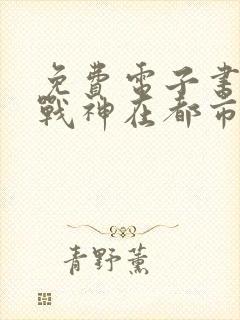 免費電子書
戰神在都市
青野薰